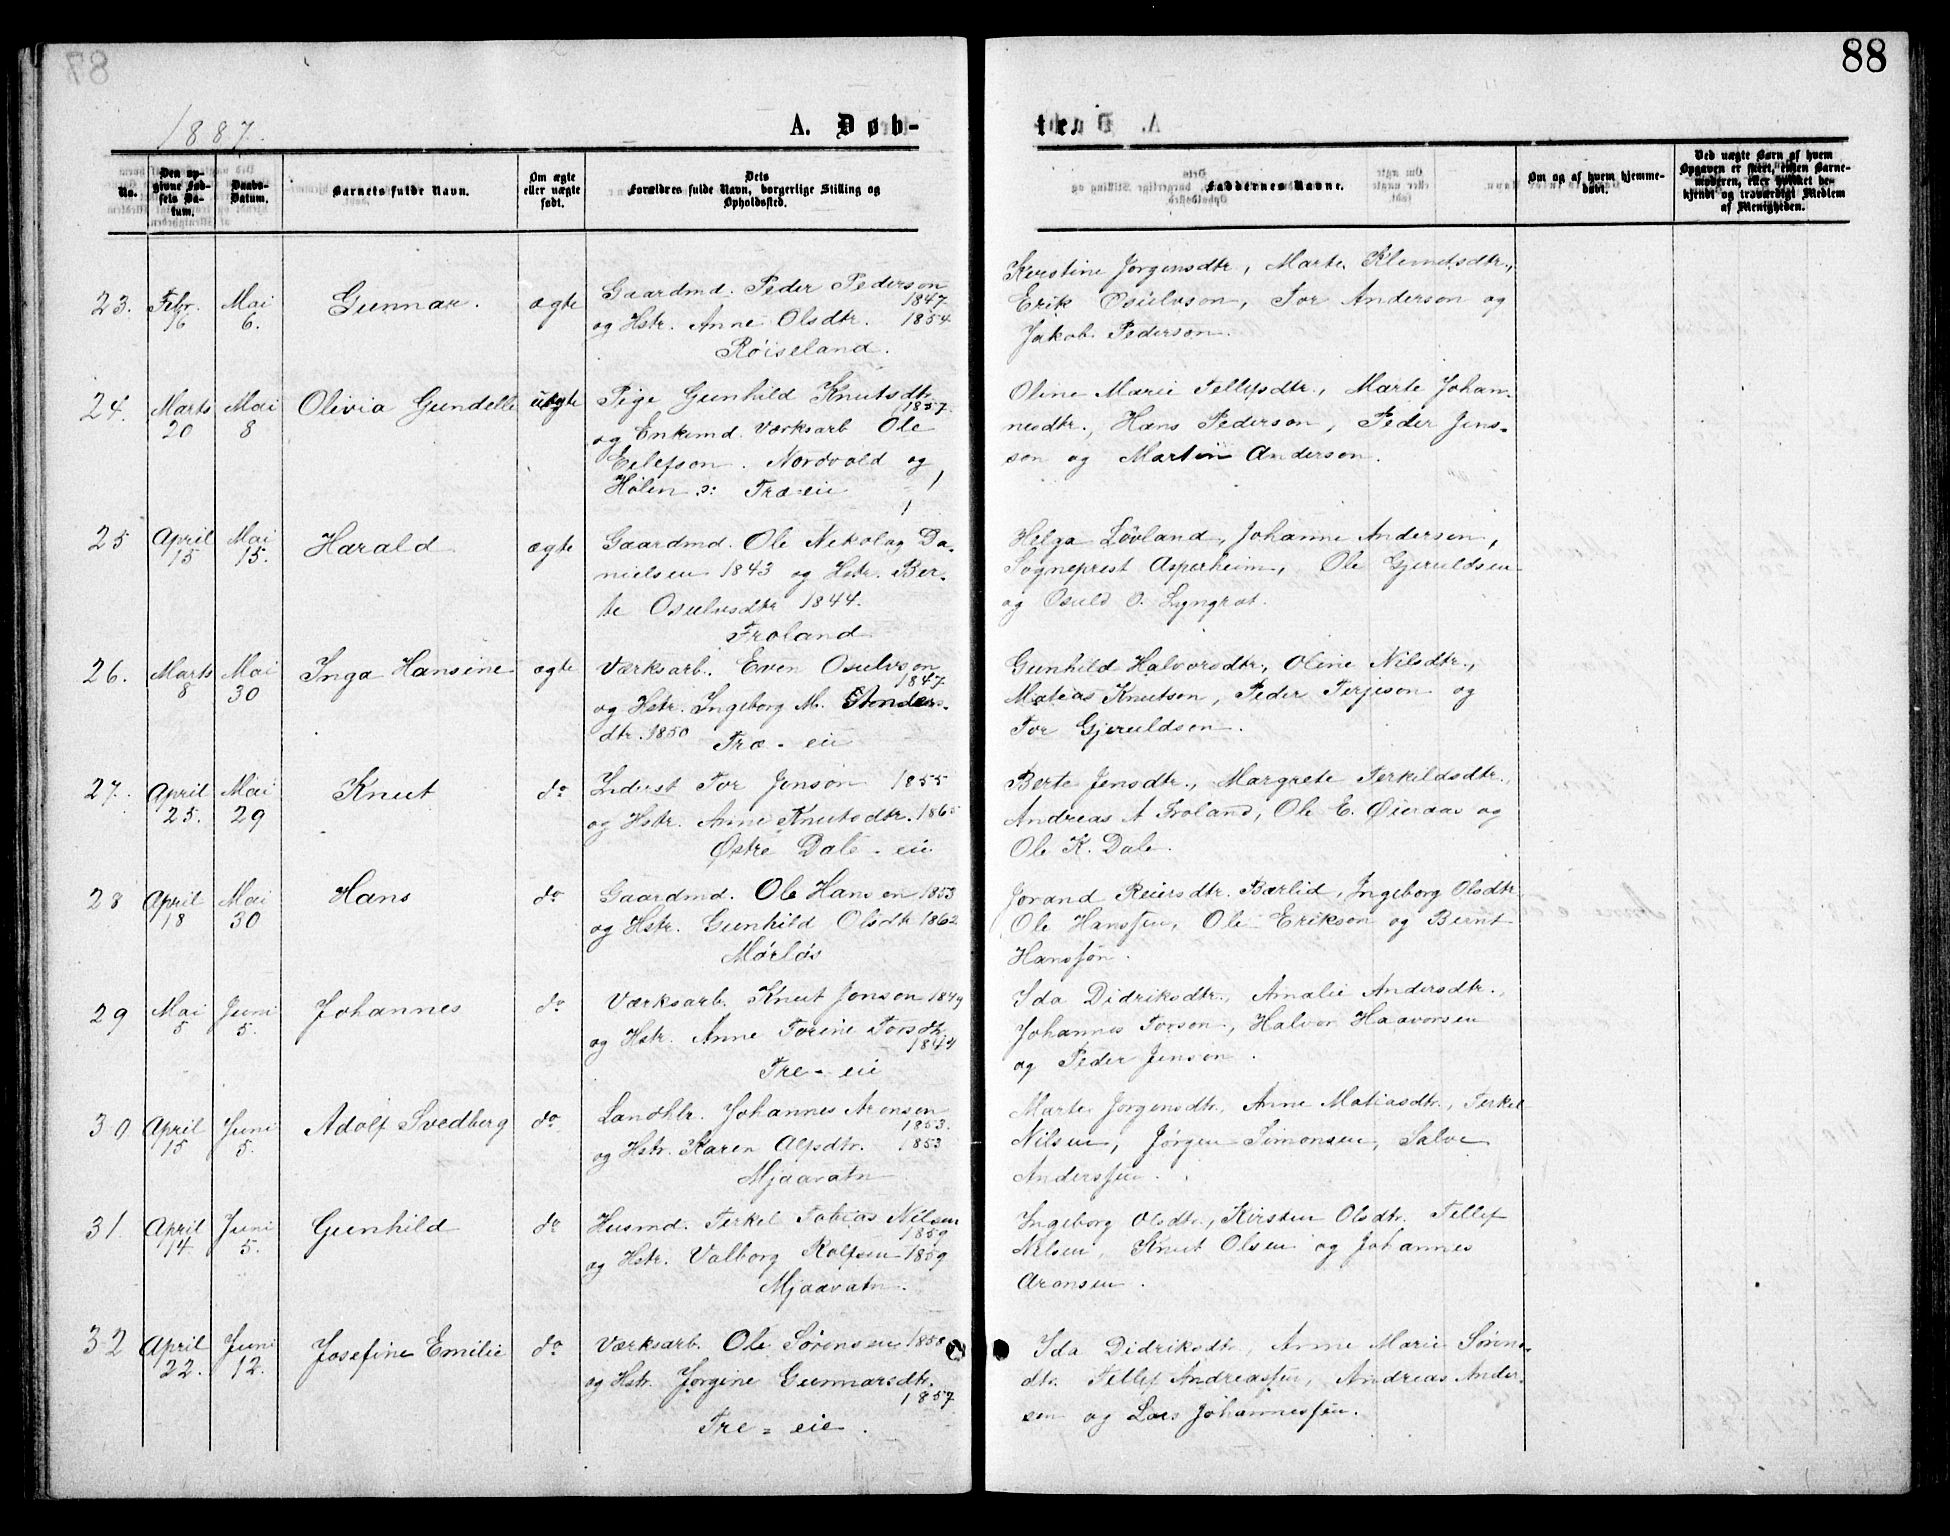 88
1887.
A. Døb-
te.
No.
Den op-
givne Fød-
sels Da-
tum.
Daabs-
Datum.
Barnets fulde Navn.
Om ægte
eller uægte
født.
Dets
Forældres fulde Navn, borgerlige Stilling og
Opholdssted.
Faddernes Navne.
Om og af hvem hjemme-
døbt.
Ved uægte Børn af hvem
Opgaven er skeet, enten Barne-
moderen, eller hvilket be-
kjendt og troværdigt Medlem
af Menigheden.
23. Febr. 16 Mai 6. Gunnar. ægte
Gaardmd. Peder Pederson 1847
og Hstr. Anne Olsdtr. 1854
Røiseland.
Kirstine Jørgensdtr, Marte Klemetsdtr,
Erik Osulvson, Tor Anderson og
Jakob Pederson.
24. Marts 20 Mai 8 Olivia Gundelle uægte
Pige Gunhild Knutsdtr 1857.
og Enkemd. Værksarb Ole
Eilefson. Nordvold og
Holen ɔ: Træ-eie
Oline Marie Tellefsdtr., Marte Johan-
nesdtr., Hans Pederson, Peder Jens-
son og Martin Anderson.
25 April 15 Mai 15. Harald ægte
Gaardmd. Ole Nikolay Da-
nielsen 1843 og Hstr. Ber-
te Osulvsdtr 1844.
Froland
Helga Løvland, Johanne Andersen,
Sogneprest Asperheim, Ole Gjeruldsen
og Osuld O. Lyngrot.
26. Marts 8 Mai 30 Inga Hansine ægte
Værksarb. Even Osulvson 1847
og Hstr. Ingeborg M. Gunders-
dtr. 1850 Træ-eie
Gunhild Halvorsdtr., Oline Nilsdtr.,
Matias Knutson, Peder Terjeson og
Tor Gjeruldson.
27. April 25. Mai 29 Knut do
Inderst Tor Jenson 1855
og Hstr. Anne Knutsdtr. 1865
Østre Dale-eie
Berte Jensdtr., Margrete Terkildsdtr.,
Andreas A Froland, Ole E. Øieraas og
Ole K. Dale.
28 April 18 Mai 30 Hans do
Gaardmd. Ole Hansen 1853
og Hstr. Gunhild Olsdtr 1862
Mørløs
Jorand Reiersdtr. Bærlid, Ingeborg Olsdtr
Ole Hansen, Ole Erikson og Bernt
Hansøn.
29 Mai 5 Juni 5. Johannes do
Værksarb. Knut Jonson 1849
og Hstr. Anne Torine Torsdtr
Tre-eie
Ida Didriksdtr., Amalie Andersdtr.,
Johannes Torson, Halvor Haavorsen
og Peder Jenson.
30 April 15 Juni 5. Adolf Svedberg do
Landhlr. Johannes Aronsen 1853.
og Hstr. Karen Alfsdtr. 1853
Mjaavatn
Marte Jørgensdtr, Anne Matiasdtr., Terkel
Nilsen, Jørgen Simonsen, Salve
Andersen.
31. April 14. Juni 5. Gunhild do
Husmd. Terkel Tobias Nilsen 1859
og Hstr. Valborg Rolfsen 1859
Mjaavatn.
Ingeborg Olsdtr., Kirsten Olsdtr. Tellef
Nilsen, Knut Olsen og Johannes
Aronsen.
32 April 22. Juni 12. Josefine Emilie do
Værksarb. Ole Sørensen 1858
og Hstr. Jørgine Gunnarsdtr. 1857
Tre-eie.
Ida Didriksdtr, Anne Marie Sørens-
dtr. Tellef Andreassen, Andreas Ander-
sen og Lars Johannessen.